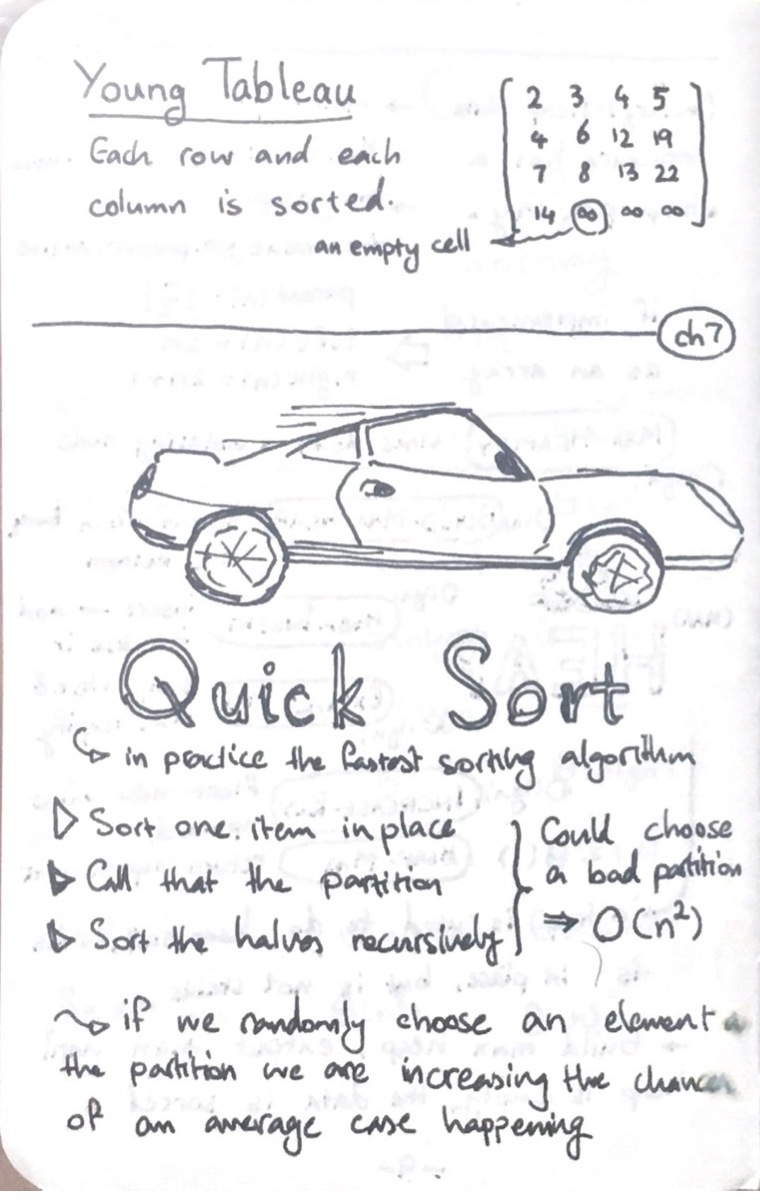 Young Tableau
Each row and each
column is sorted.
2 3 4 5
4 6 12 19
7 8 13 22
14 ∞ ∞ ∞
an empty cell
ch7
Quick Sort
in practice the fastest sorting algorithm
Sort one item in place
Call that the partition
Sort the halves recursively
Could choose
a bad partition
⇒ O(n²)
if we randomly choose an element
the partition we are increasing the chances
of an average case happening